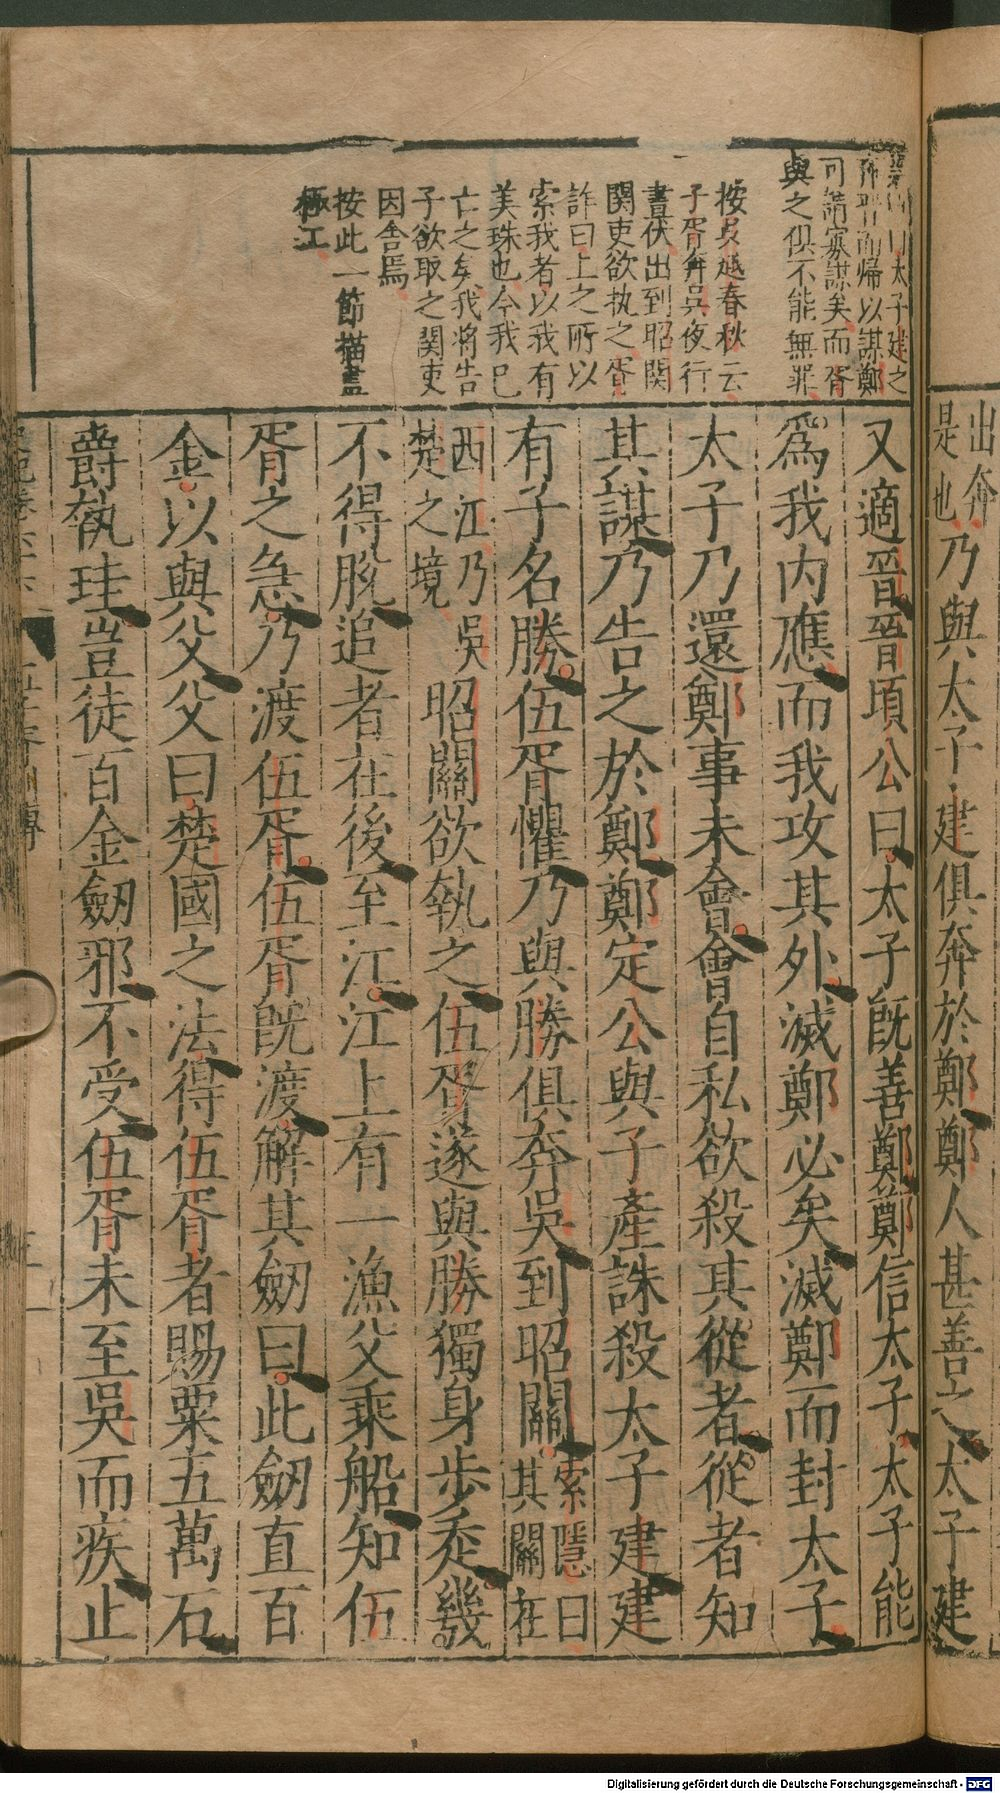 出奔
是也
乃與太子建俱奔於鄭鄭人甚善之太子建
太子建之
而歸以謀鄭
可謂寡謀矣而胥
與之俱不能無罪
按吳越春秋云
子胥奔吳夜行
晝伏出到昭関
関吏欲执之胥
詐曰上之所以
索我者以我有
美珠也今我已
亡之矣我将告
子欲取之関吏
因舍焉
按此一節描盡
極工
又適晉晉頃公曰太子既善鄭鄭信太子太子能
爲我内應而我攻其外滅鄭必矣滅鄭而封太子
太子乃還鄭事未會會自私欲殺其從者從者知
其謀乃告之於鄭鄭定公與子產誅殺太子建建
有子名勝伍胥懼乃與勝俱奔吳到昭關
索隱曰
其關在
西江乃吳
楚之境
昭關欲執之伍胥遂與勝獨身步走幾
不得脫追者在後至江江上有一漁父乘船知伍
胥之急乃渡伍胥伍胥既渡解其劒曰此劒直百
金以與父父曰楚國之法得伍胥者賜粟五萬石
爵執珪豈徒百金劒邪不受伍胥未至吳而疾止
Digitalisierung gefördert durch die Deutsche Forschungsgemeinschaft - DFG